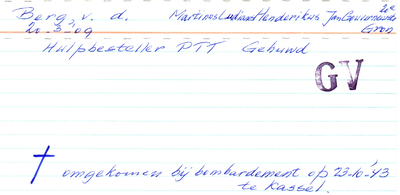 Berg, v. d. Martinus Ludinus Henderikus Jan Gouverneurstr 20a
20-3-'09 Gron.
Hulpbesteller PTT Gehuwd
GV
† omgekomen bij bombardement op 23-10-'43
te Kassel.